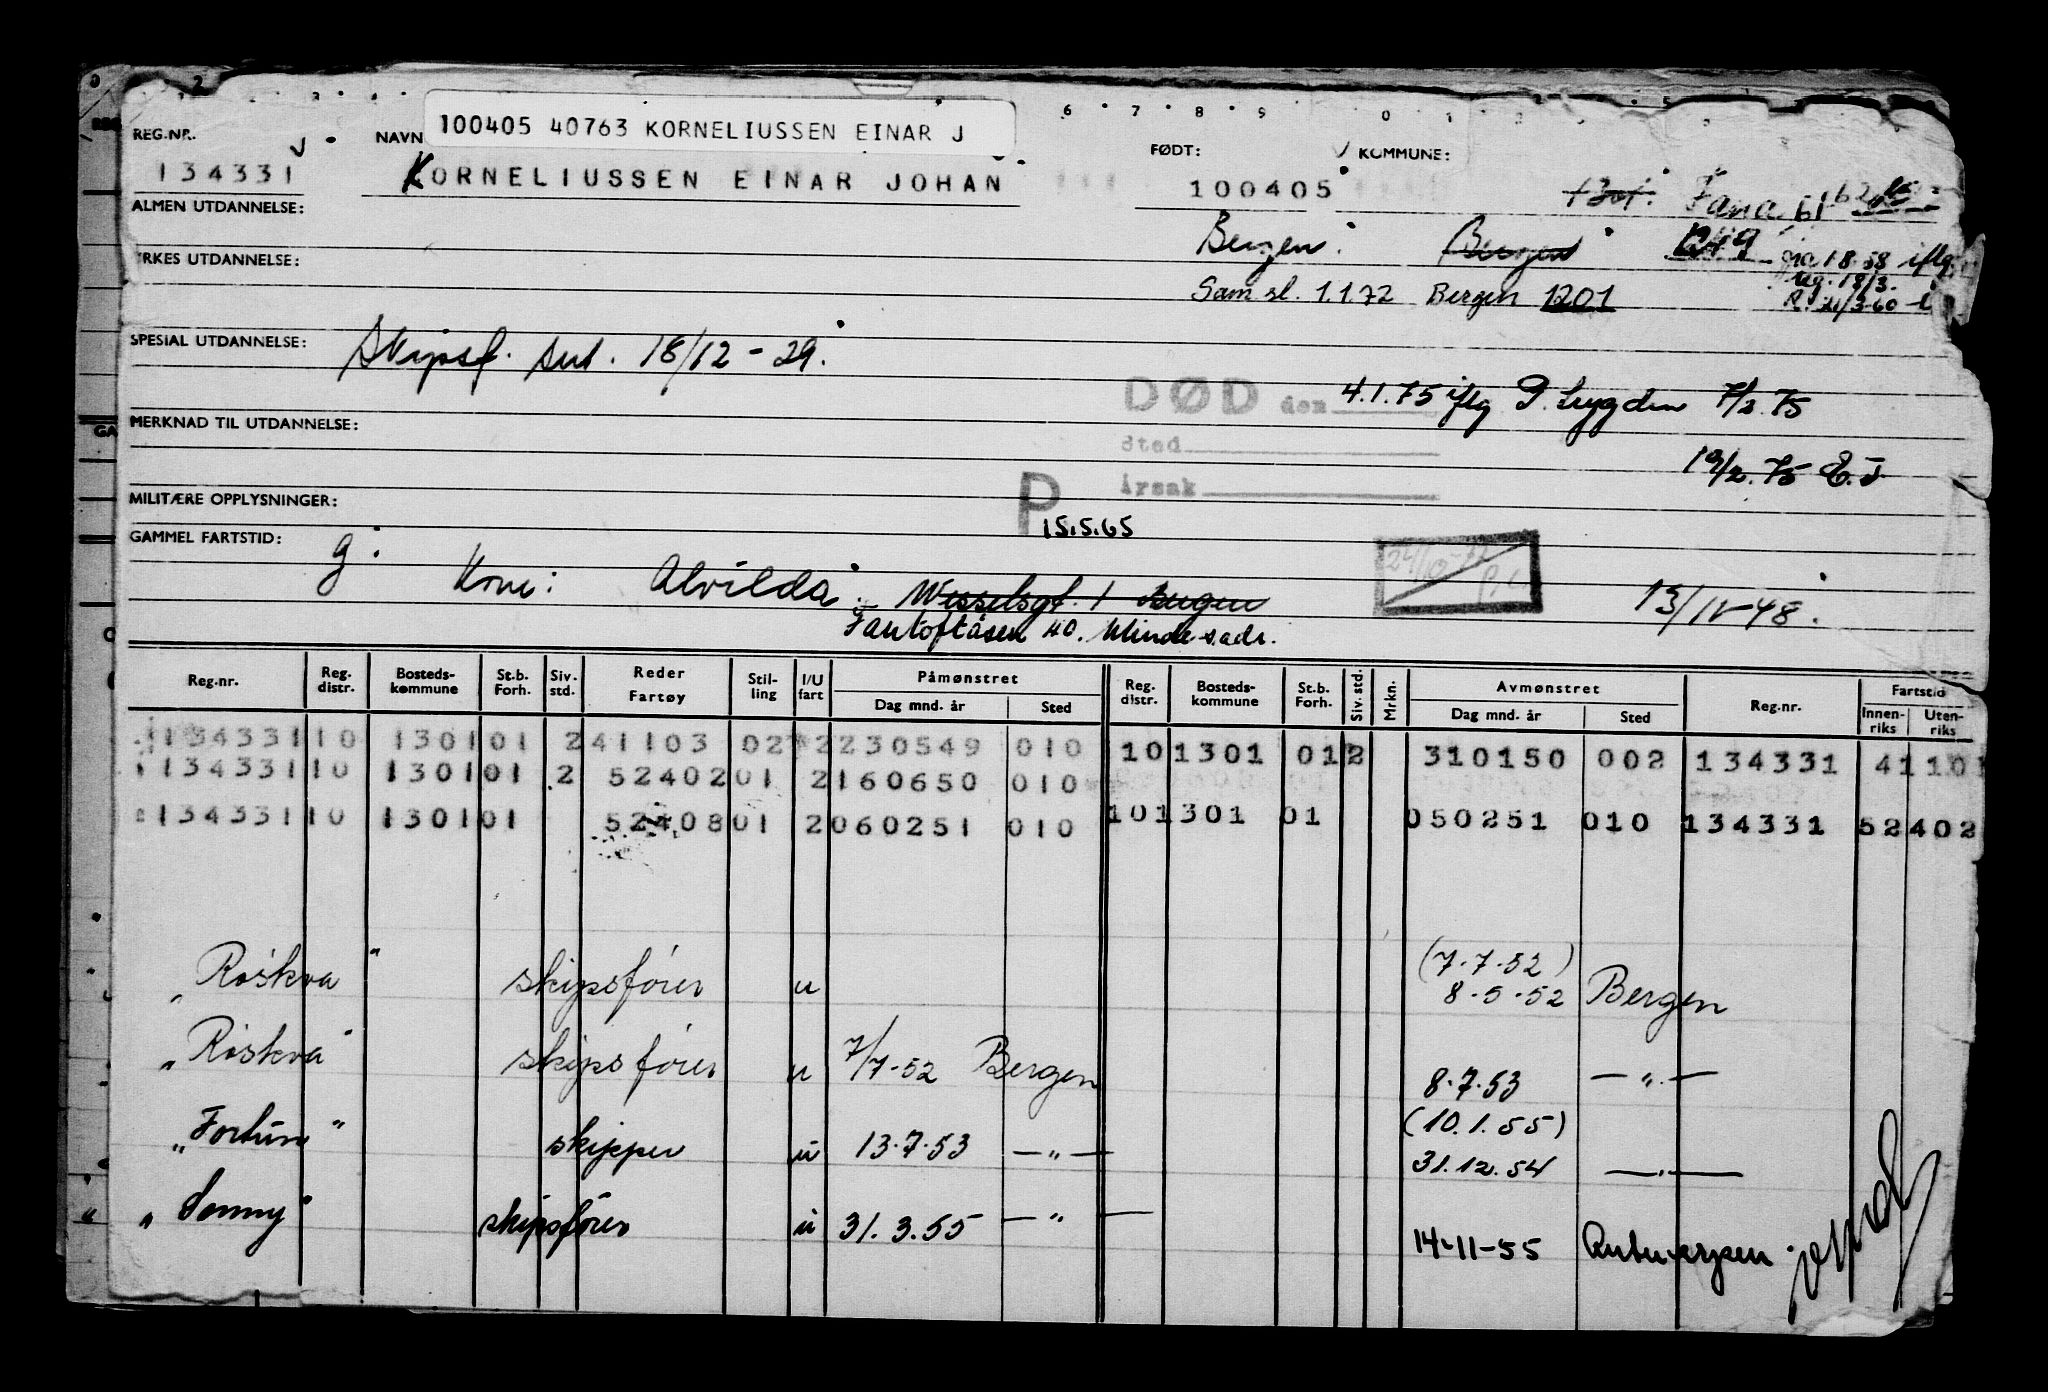 100405 40763 KORNELIUSSEN EINAR J
REG.NR. NAVN FØDT: KOMMUNE:
134331 KORNELIUSSEN EINAR JOHAN 100405
Fana 61
ALMEN UTDANNELSE:
Bergen. Bergen
YRKES UTDANNELSE:
Sam.sl. 1.1.72 Bergen 1201
SPESIAL UTDANNELSE: Skipsf. sert. 18/12-29.
DØD den 4.1.75 iflg 7/2.75
MERKNAD TIL UTDANNELSE:
Sted
19/2.75 E.J
Årsak
MILITÆRE OPPLYSNINGER: P 15.5.65
GAMMEL FARTSTID: g.
Kone: Alvilda. Wesselsgt. 1 Bergen 13/IV-48.
Fantoftåsen 40. Minde s.adr.
Reg.nr. Reg. distr. Bosteds-kommune St.b. Forh. Siv. std. Reder Fartøy Stil-ling I/U fart Påmønstret Dag mnd. år Sted Reg. distr. Bosteds-kommune St.b. Forh. Siv. std. Mrkn. Avmønstret Dag mnd. år Sted Reg.nr. Fartstid Innen-riks Uten-riks
134331 10 1301 01 2 41103 02 2 230549 010 10 1301 01 2 310150 002 134331 41 10
134331 10 1301 01 2 52402 01 2 160650 010
134331 10 1301 01 52408 01 2 060251 010 10 1301 01 050251 010 134331 52 402
(7.7.52)
"Røskva" skipsfører u 8.5.52 Bergen
"Røskva" skipsfører u 7/7-52 Bergen 8.7.53 — " —
(10.1.55)
"Fortuna" skipper u 13.7.53 — " — 31.12.54 — " —
"Sonny" skipsfører u 31.3.55 — " — 14-11-55 Antwerpen